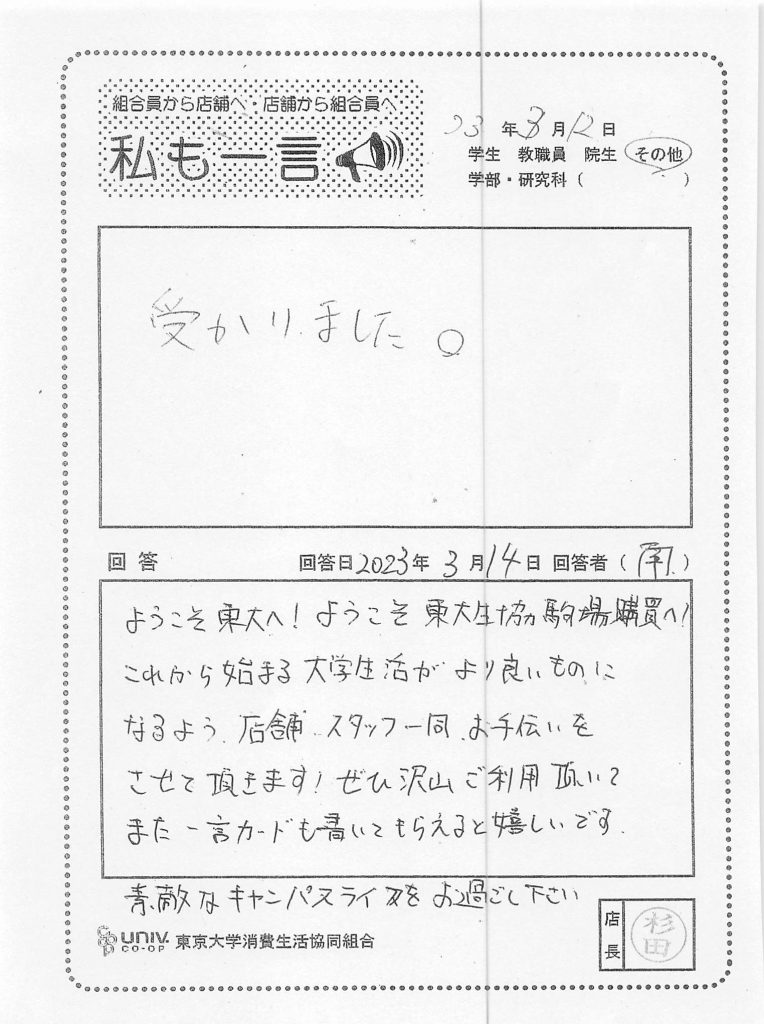 組合員から店舗へ・店舗から組合員へ
私も一言
23年3月12日
学生 教職員 院生 その他
学部・研究科( )
受かりました。
回答 回答日2023年3月14日 回答者(南)
ようこそ東大へ!ようこそ東大生協駒場購買へ!
これから始まる大学生活がより良いものに
なるよう、店舗スタッフ一同、お手伝いを
させて頂きます!ぜひ沢山ご利用頂いて
また一言カードも書いてもらえると嬉しいです。
素敵なキャンパスライフをお過ごし下さい
店長 杉田
UNIV. CO-OP 東京大学消費生活協同組合